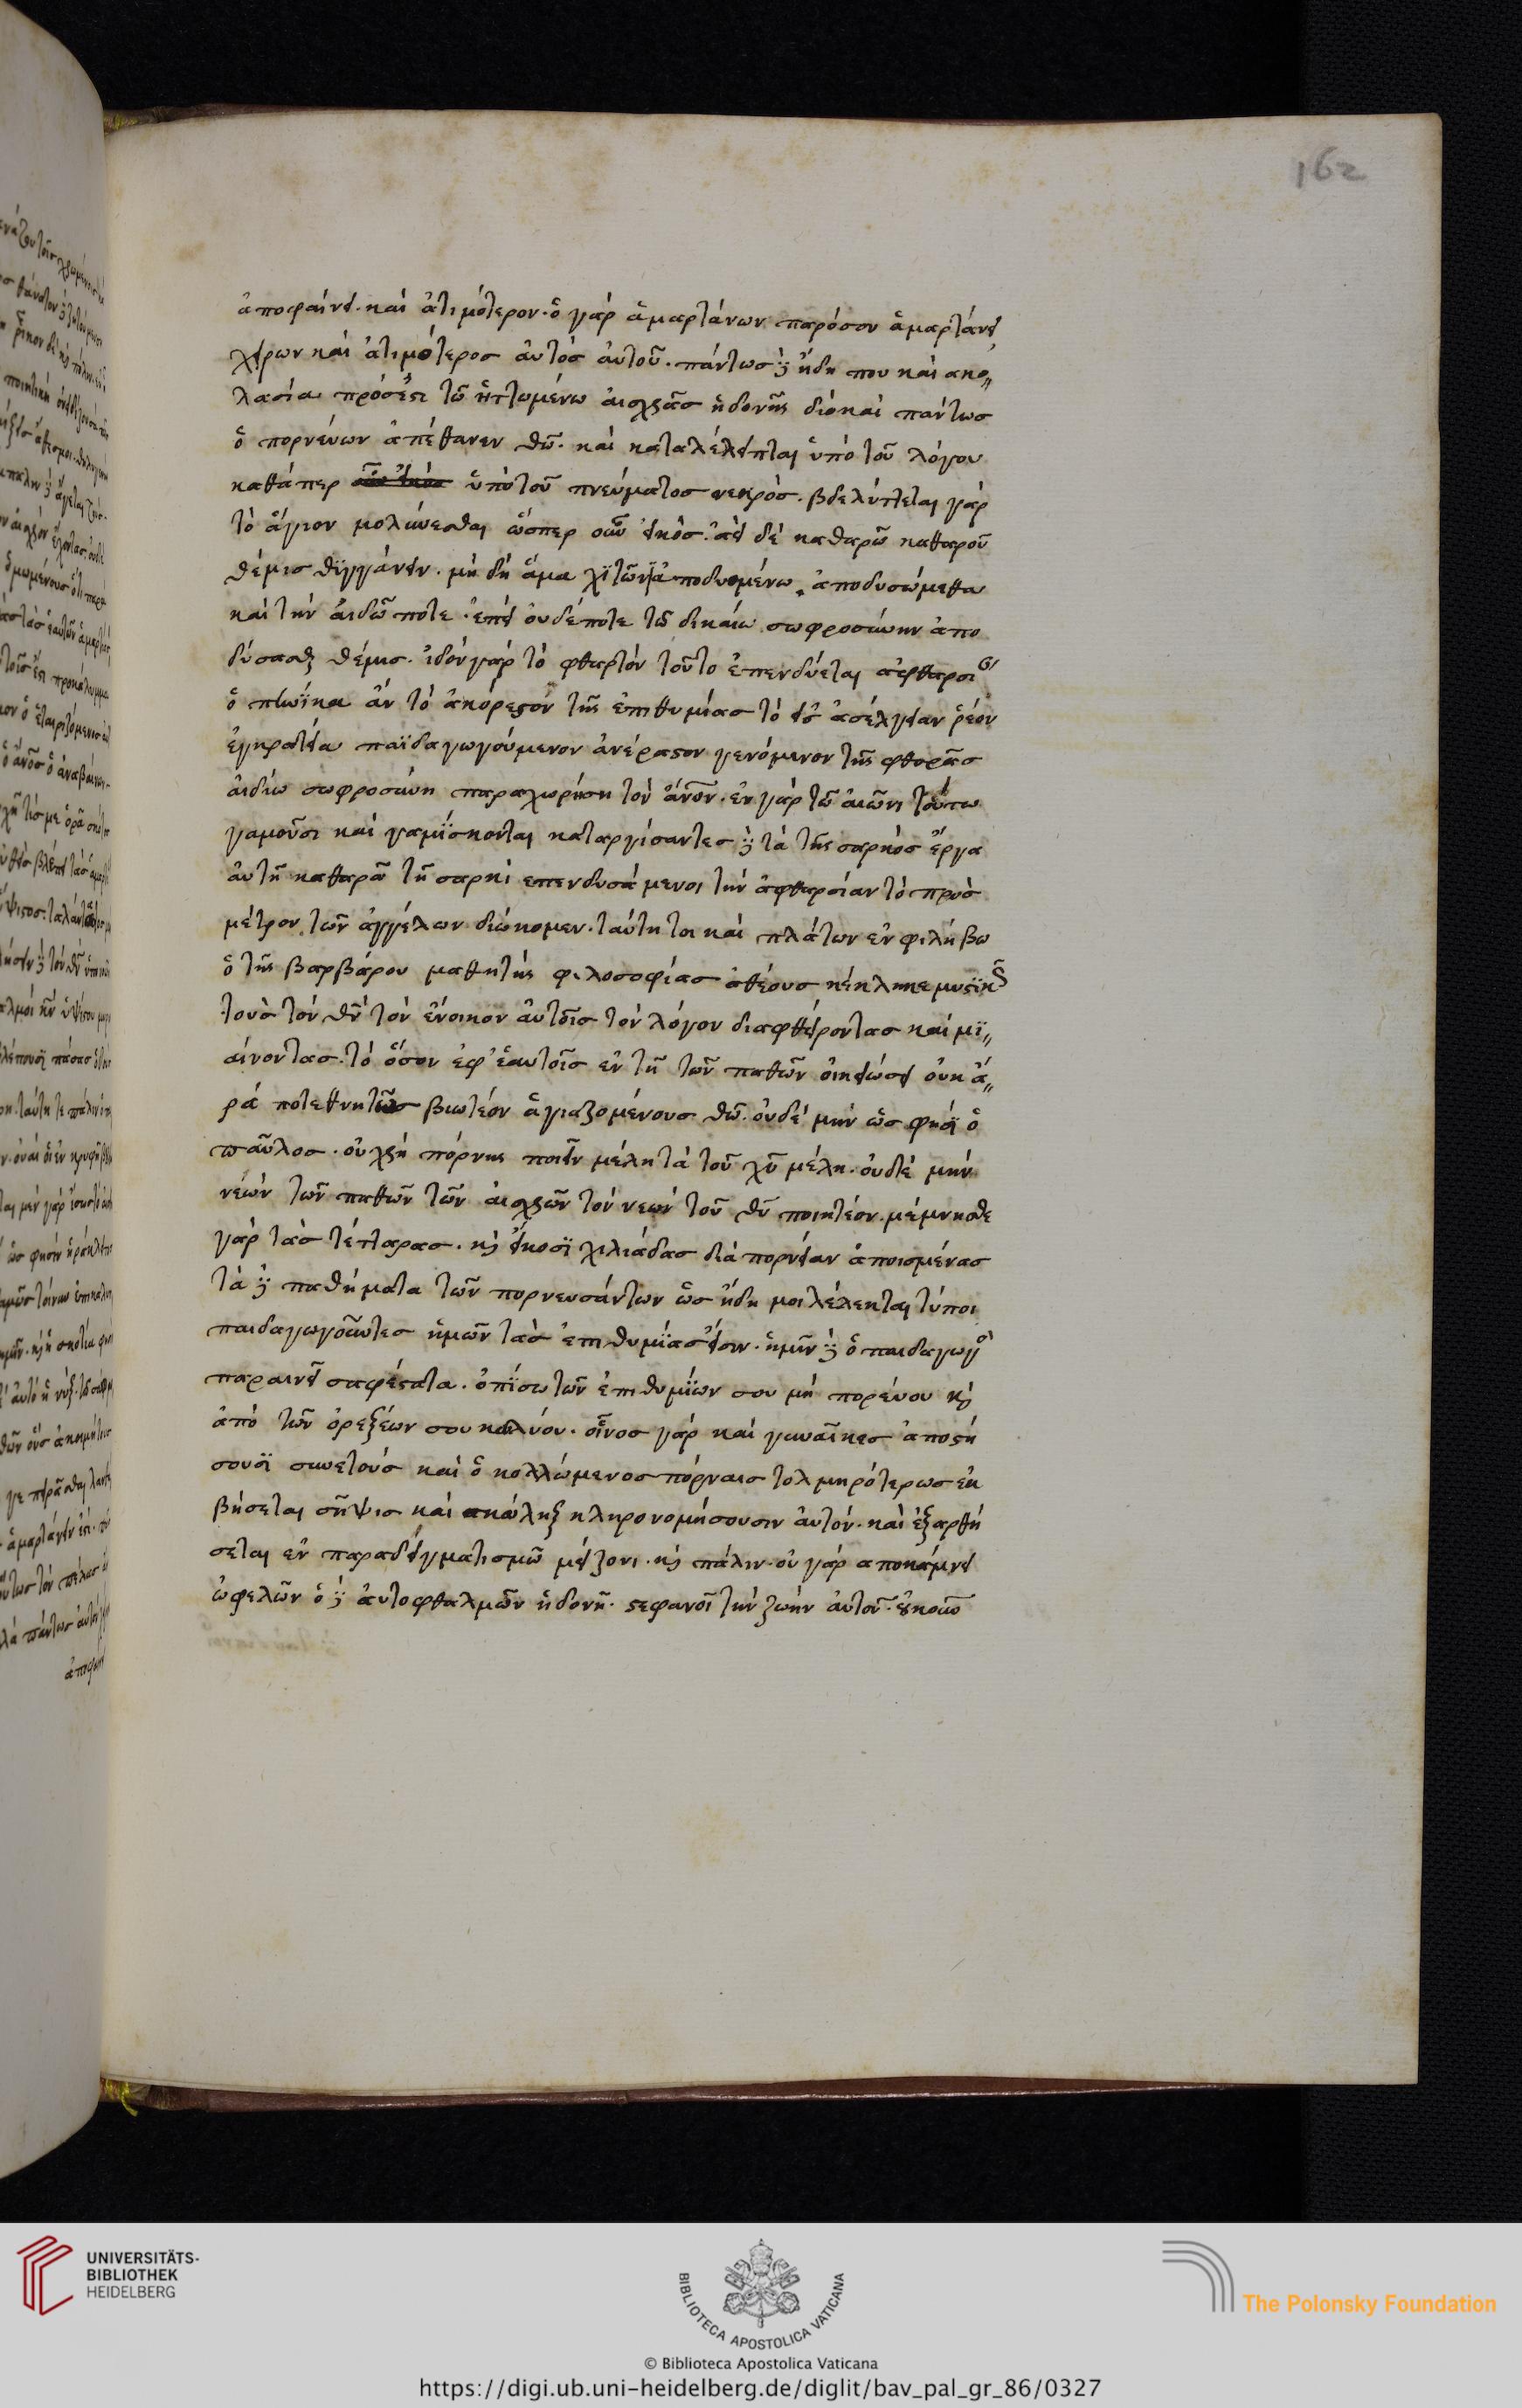 162
ἀποφαίνει. καὶ ἀτιμότερον. ὁ γὰρ ἁμαρτάνων παρόσον ἁμαρτάνει
χείρων καὶ ἀτιμότερος αὐτὸς αὑτοῦ. πάντως δὲ ἤδη που καὶ ακο„
λασία πρόσεστι τῶ ἡττωμένω αἰσχρᾶς ἡδονῆς διὸ καὶ πάντως
ὁ πορνεύων ἀπέθανεν θῶ. καὶ καταλέλειπται ὑπὸ τοῦ λόγου
καθάπερ ὑπὸ τοῦ πνεύματος νεκρός. βδελύττεται γὰρ
τὸ ἅγιον μολύνεσθαι ὥσπερ οὖν εἰκός. ἀεὶ δὲ καθαρῶ καθαροῦ
θέμις θϊγγάνειν. μὴ δὴ ἅμα χϊτῶνι ἀποδυομένω ἀποδυσώμεθα
καὶ τὴν αἰδῶ ποτε. ἐπεὶ οὐδέποτε τῶ δικαίω σωφροσύνην ἀπο
δύσασθαι θέμις. ἰδοὺ γὰρ τὸ φθαρτὸν τοῦτο ἐπενδύεται αφθαρσι
ὁπηνίκα ἂν τὸ ἀκόρεστον τῆς ἐπιθυμίας τὸ εἰς ἀσέλγειαν ῥέον
ἐγκρατεία παϊδαγωγούμενον ἀνέραστον γενόμενον τῆς φθορᾶς
ἀιδίω σωφροσύνη παραχωρήση τὸν ἄνον. ἐν γὰρ τῶ αἰῶνι τούτω
γαμοῦσι καὶ γαμΐσκονται καταργίσαντες δὲ τὰ τῆς σαρκὸς ἔργα
αὐτῆ καθαρᾶ τῆ σαρκὶ επενδυσάμενοι τὴν ἀφθαρσίαν τὸ πρὸς
μέτρον τῶν ἀγγέλων διώκομεν. ταύτη τοι καὶ πλάτων ἐν φιλήβω
ὁ τῆς βαρβάρου μαθητὴς φιλοσοφίας ἀθέους κέκληκε μυστϊκῶς
τοὺς τὸν θν τὸν ἔνοικον αὐτοῖς τὸν λόγον διαφθείροντας καὶ μϊ„
αίνοντας. τὸ ὅσον ἐφ' ἑαυτοῖς ἐν τῆ τῶν παθῶν οἰκειώσει οὐκ ἄ„
ρά ποτε θνητῶς βιωτέον ἁγιαζομένους θῶ. οὐδὲ μὴν ὥς φησϊ ὁ
παῦλος. οὐ χρὴ πόρνης ποιεῖν μέλη τὰ τοῦ χῦ μέλη. οὐδὲ μὴν
νεὼν τῶν παθῶν τῶν αἰσχρῶν τὸν νεὼν τοῦ θῦ ποιητέον. μέμνησθε
γὰρ τὰς τέτταρας. καὶ εἴκοσϊ χιλιάδας διὰ πορνείαν ἀποισμένας
τὰ δὲ παθήματα τῶν πορνευσάντων ὡς ἤδη μοι λέλεκται τύποι
παιδαγωγοῦντες ἡμῶν τὰς ἐπιθυμϊας εἰσιν. ἡμῖν δὲ ὁ παιδαγωγὸ
παραινεῖ σαφέστατα. ὀπΐσω τῶν ἐπιθυμϊων σου μὴ πορεύου καὶ
ἀπὸ τῶν ὀρεξέων σου κωλύου. οἶνος γὰρ καὶ γυναῖκες ἀποστή
σουσϊ συνετοὺς καὶ ὁ κολλώμενος πόρναις τολμηρότερως ἐκ
βήσεται σῆψις καὶ σκώληξ κληρονομήσουσιν αὐτόν. καὶ ἐξαρθή
σεται ἐν παραδειγματισμῶ μείζονι. καὶ πάλιν. οὐ γὰρ αποκάμνει
ὠφελῶν ὁ δὲ ἀντοφθαλμῶν ἡδονῆ. στεφανοῖ τὴν ζωὴν αὐτοῦ.
UNIVERSITÄTS-
BIBLIOTHEK
HEIDELBERG
BIBLIOTECA APOSTOLICA VATICANA
The Polonsky Foundation
© Biblioteca Apostolica Vaticana
https://digi.ub.uni-heidelberg.de/diglit/bav_pal_gr_86/0327